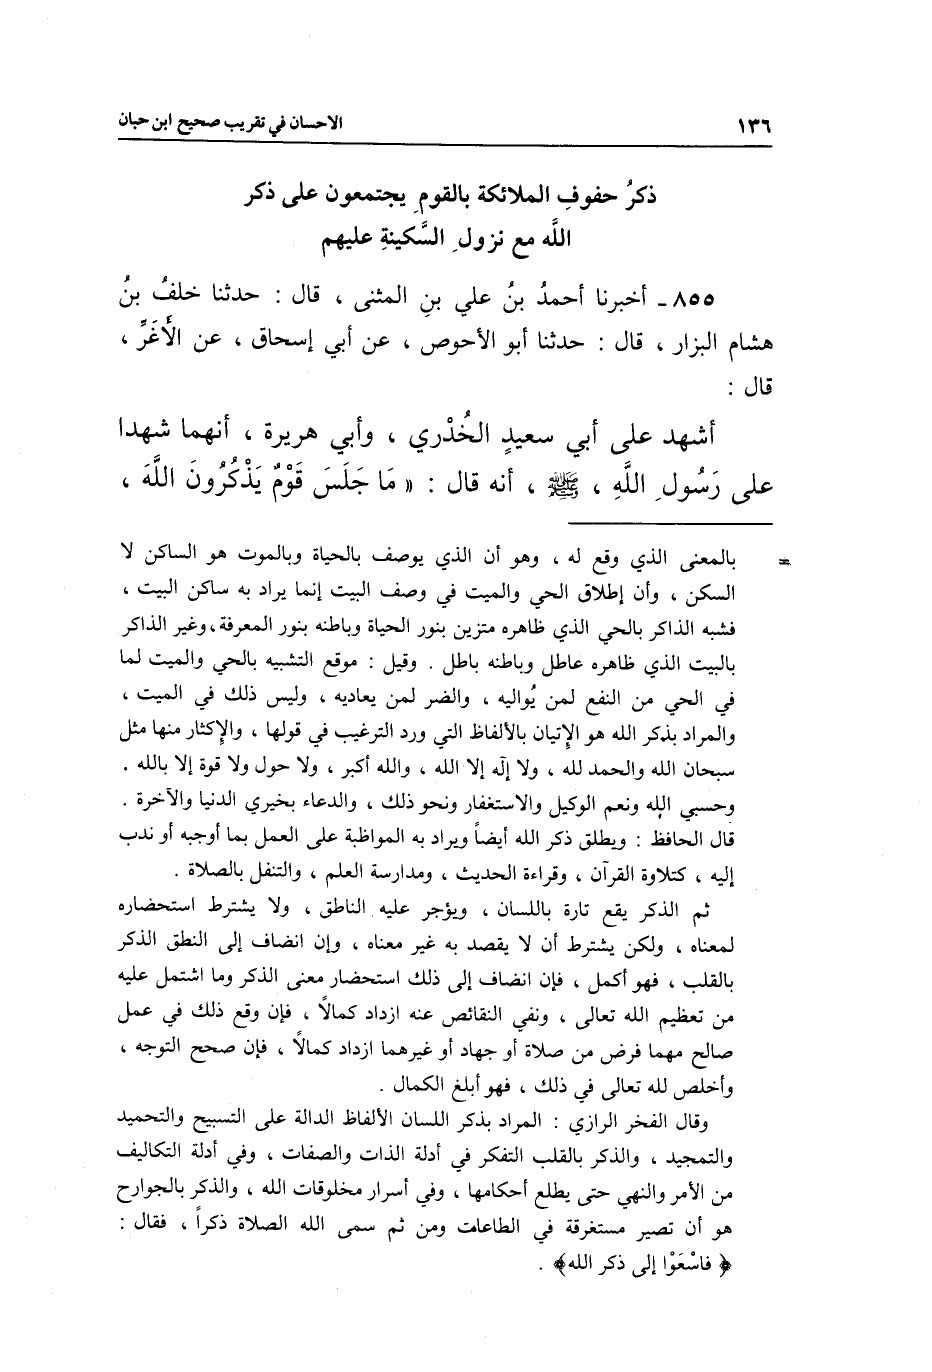 ١٣٦ الاحسان في تقريب صحيح ابن حبان
ذكرُ حفوفِ الملائكة بالقومِ يجتمعون على ذكر
اللَّه مع نزولِ السَّكينةِ عليهم
٨٥٥ - أخبرنا أحمدُ بنُ علي بنِ المثنى ، قال : حدثنا خلفُ بنُ
هشام البزار ، قال : حدثنا أبو الأحوص ، عن أبي إسحاق ، عن الأَغَرِّ ،
قال :
أشهد على أبي سعيدٍ الخُدْري ، وأبي هريرة ، أنهما شهدا
على رَسُولِ اللَّهِ ، ﷺ ، أنه قال : « مَا جَلَسَ قَوْمٌ يَذْكُرُونَ اللَّهَ ،
= بالمعنى الذي وقع له ، وهو أن الذي يوصف بالحياة وبالموت هو الساكن لا
السكن ، وأن إطلاق الحي والميت في وصف البيت إنما يراد به ساكن البيت ،
فشبه الذاكر بالحي الذي ظاهره متزين بنور الحياة وباطنه بنور المعرفة، وغير الذاكر
بالبيت الذي ظاهره عاطل وباطنه باطل . وقيل : موقع التشبيه بالحي والميت لما
في الحي من النفع لمن يُواليه ، والضر لمن يعاديه ، وليس ذلك في الميت ،
والمراد بذكر الله هو الإتيان بالألفاظ التي ورد الترغيب في قولها ، والإكثار منها مثل
سبحان الله والحمد لله ، ولا إله إلا الله ، والله أكبر ، ولا حول ولا قوة إلا بالله .
وحسبي الله ونعم الوكيل والاستغفار ونحو ذلك ، والدعاء بخيري الدنيا والآخرة .
قال الحافظ : ويطلق ذكر الله أيضاً ويراد به المواظبة على العمل بما أوجبه أو ندب
إليه ، كتلاوة القرآن ، وقراءة الحديث ، ومدارسة العلم ، والتنفل بالصلاة .
ثم الذكر يقع تارة باللسان ، ويؤجر عليه الناطق ، ولا يشترط استحضاره
لمعناه ، ولكن يشترط أن لا يقصد به غير معناه ، وإن انضاف إلى النطق الذكر
بالقلب ، فهو أكمل ، فإن انضاف إلى ذلك استحضار معنى الذكر وما اشتمل عليه
من تعظيم الله تعالى ، ونفي النقائص عنه ازداد كمالاً ، فإن وقع ذلك في عمل
صالح مهما فرض من صلاة أو جهاد أو غيرهما ازداد كمالاً ، فإن صحح التوجه ،
وأخلص لله تعالى في ذلك ، فهو أبلغ الكمال .
وقال الفخر الرازي : المراد بذكر اللسان الألفاظ الدالة على التسبيح والتحميد
والتمجيد ، والذكر بالقلب التفكر في أدلة الذات والصفات ، وفي أدلة التكاليف
من الأمر والنهي حتى يطلع أحكامها ، وفي أسرار مخلوقات الله ، والذكر بالجوارح
هو أن تصير مستغرقة في الطاعات ومن ثم سمى الله الصلاة ذكراً ، فقال :
﴿ فاسْعَوْا إلى ذكر الله﴾ .